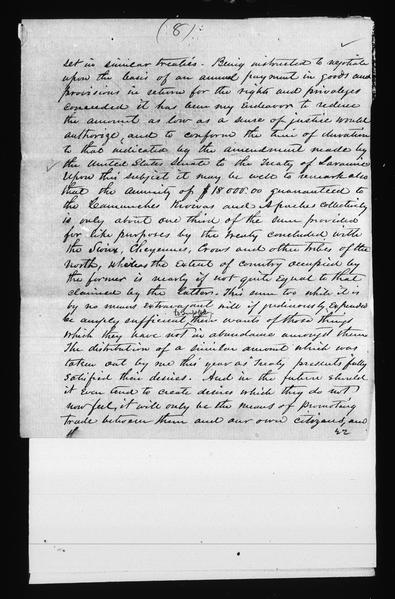 (8)
set in similar treaties. Being instructed to negotiate
upon the basis of an annual payment in goods and
provisions in return for the rights and privileges
conceded it has been my Endeavor to reduce
the amount as low as a sense of justice would
authorize, and to conform the time of duration
to that indicated by the amendment made by
the United States Senate to the Treaty of Laramie
Upon this subject it may be well to remark also
that the Annuity of $18000.00 guaranteed to
the Camanches Kiowas and Apaches Collectively
is only about one third of the sum provided
for like purposes by the Treaty concluded with
the Sioux, Cheyennes, Crows and other tribes of the
North, whereas the Extent of country occupied by
the former is nearly if not quite Equal to that
claimed by the latter. This sum too while it is
by no means extravagant will if judiciously Expended
be amply sufficient their wants of those things
to supply
which they have not in abundance amongst them
The distribution of a similar amount which was
taken out by me this year as Treaty presents fully
satisfied their desires. And in the future should
it Even tend to create desires which they do not
now feel, it will only be the means of promoting
trade between them and our own citizens, and
42